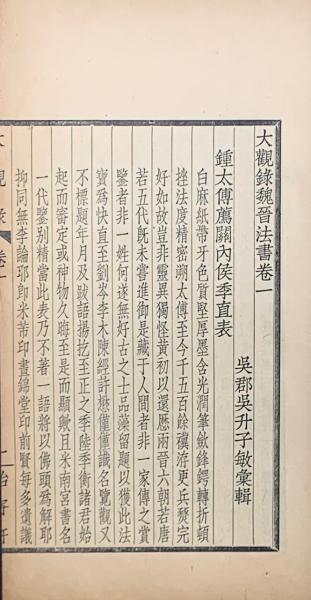 大觀錄魏晉法書卷一
吳郡吳升子敏彙輯
鍾太傅薦關內侯季直表
白麻紙帶牙色質堅厚墨含光潤筆斂鋒鍔轉折頓
挫法度精密溯太傅至今千五百餘禩洊更兵燹完
好如故豈非靈異獨怪黃初以還歷兩晉六朝若唐
若五代旣未嘗進御是藏于人間者非一家傳之賞
鑒者非一姓何遂無好古之士品藻留題以獲此法
寶爲快直至劉岑李木陳經許懋僅僅識名覽觀又
不標題年月及跋語揚扢至正之季陸季衡諸君始
起而審定或神物久晦至是而顯歟且米南宮書名
一代鑒别精當此表乃不著一語將以佛頭爲解耶
抑同無李論耶卽米芾印晝錦堂印前賢每多遺議
大觀錄 卷一